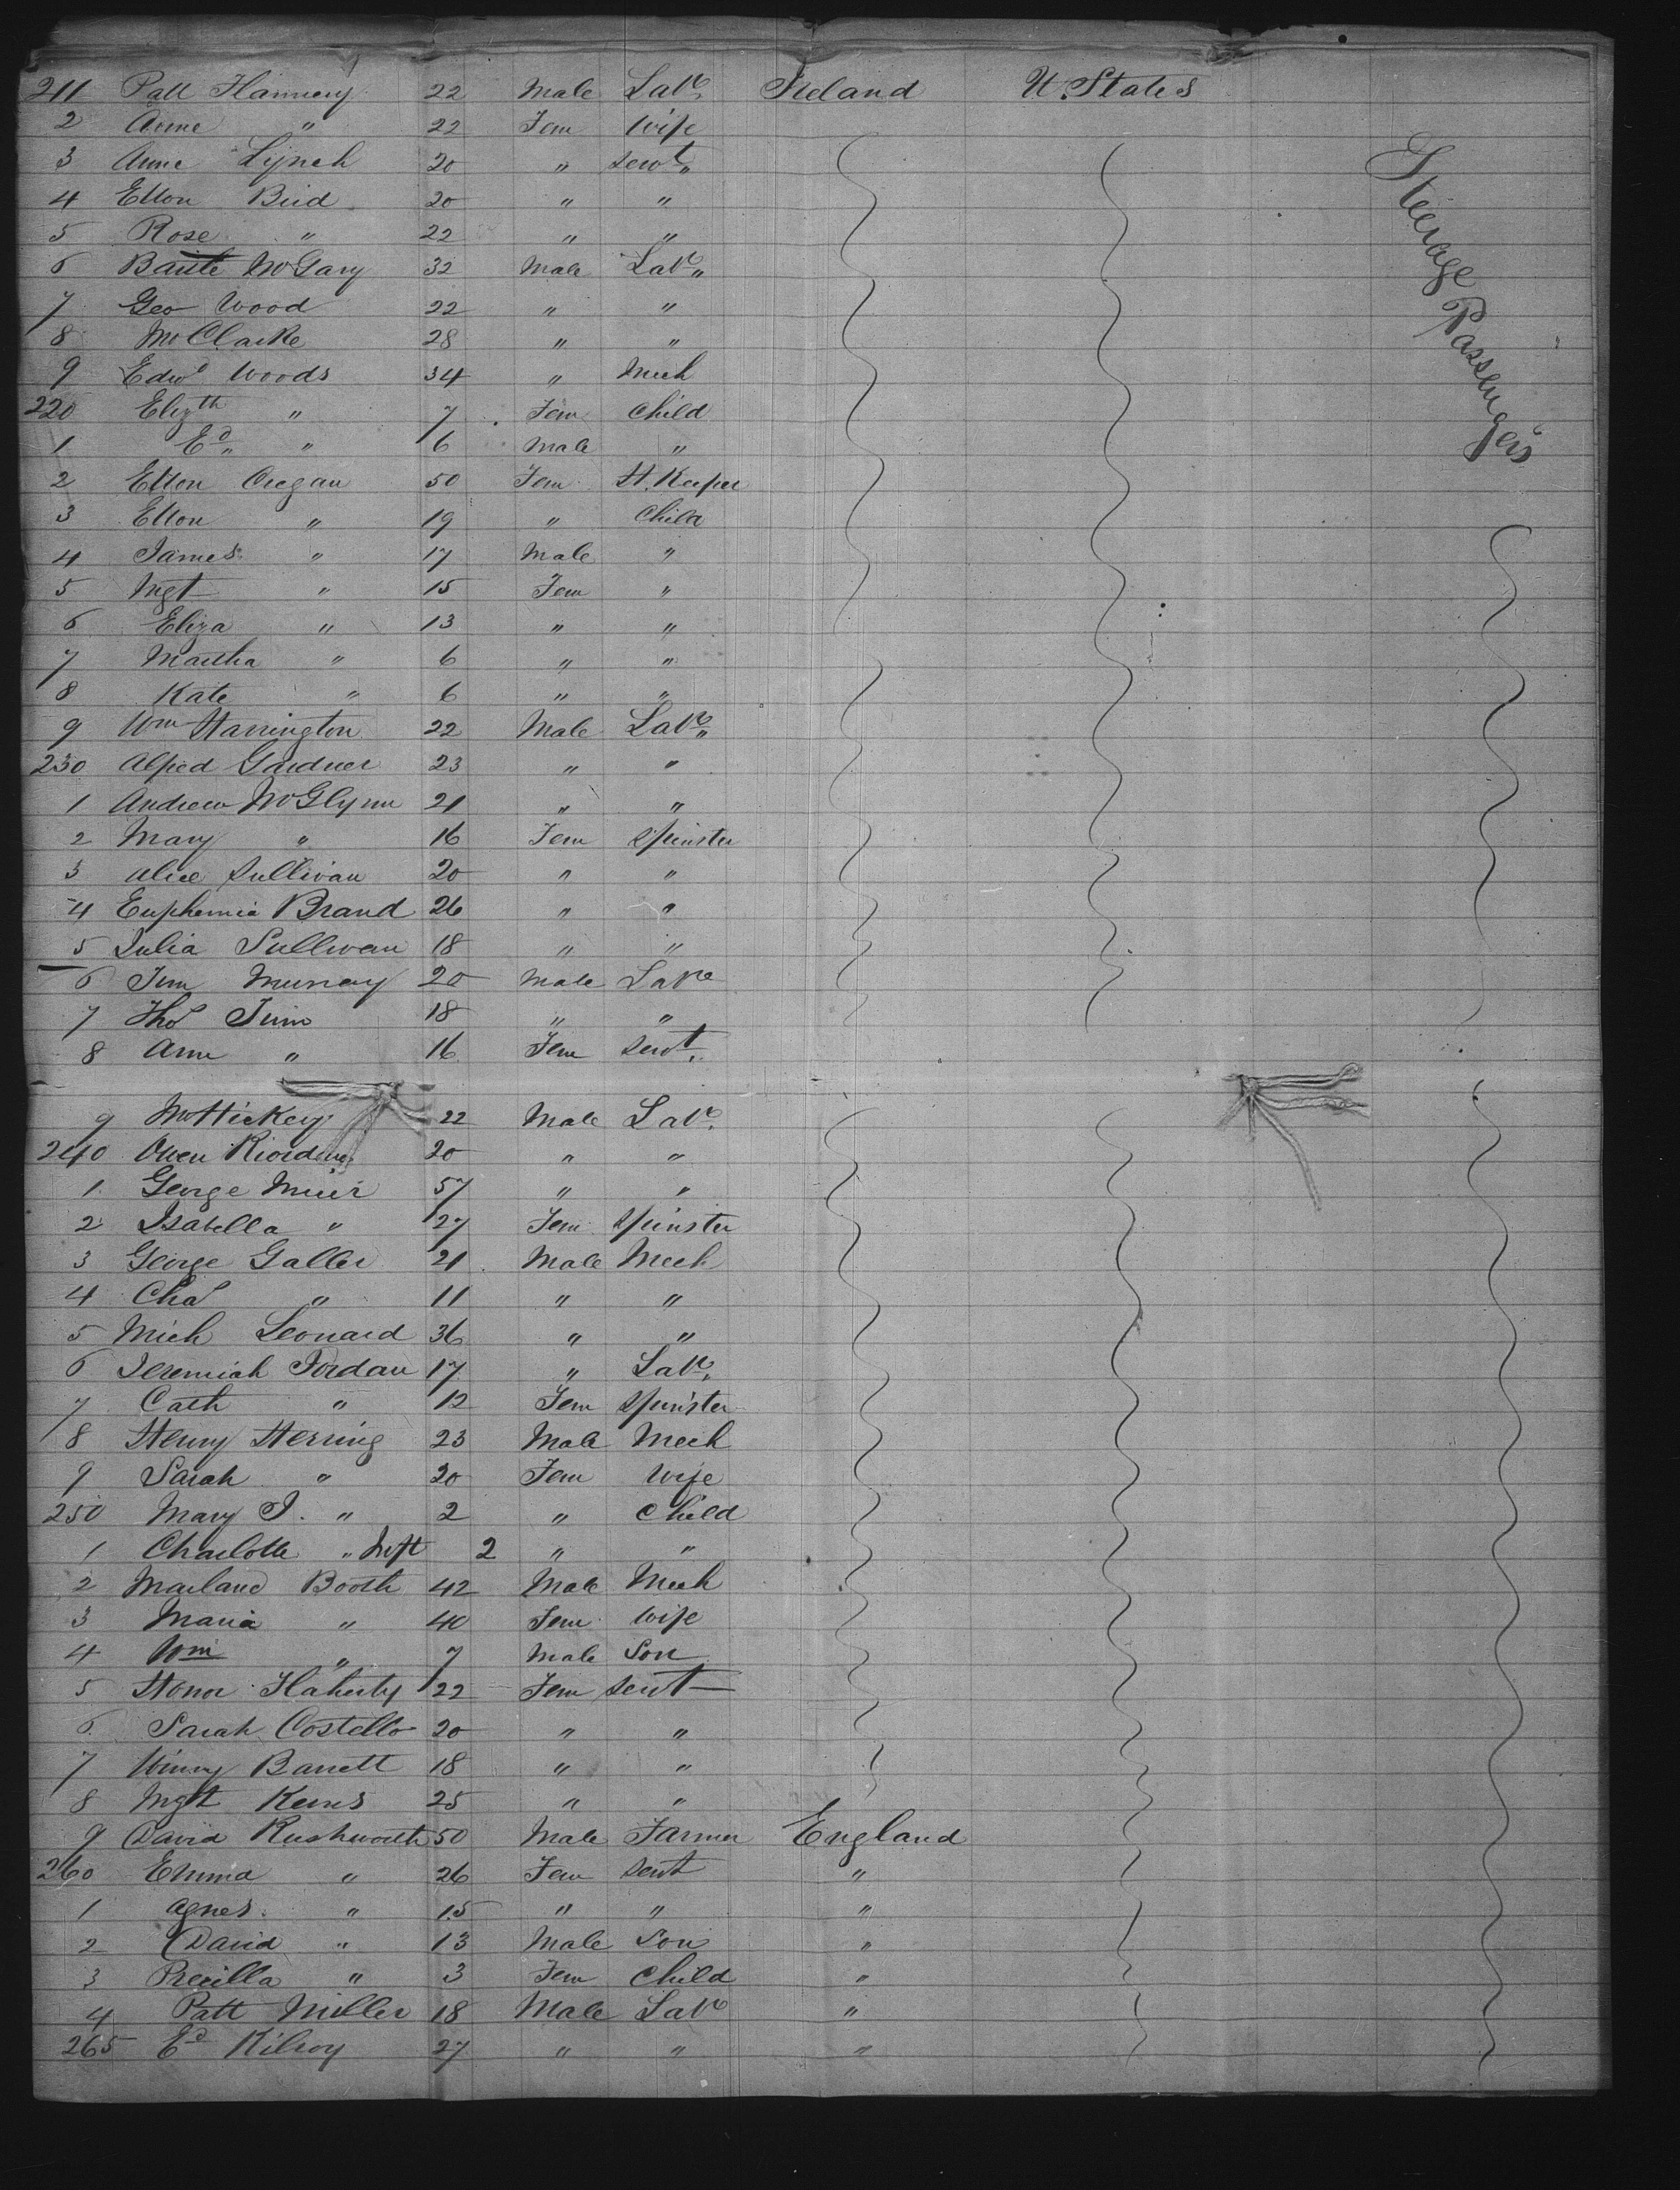 211 Patt Flannery 22 Male Labr Ireland U. States
2 Anne " 22 Fem Wife
3 Anne Lynch 20 " Servt "
4 Ellen Bird 20 " "
5 Rose " 22 " "
6 McGary 32 Male Labr "
7 Geo Wood 22 " "
8 Clarke 28 " "
9 Edwd Woods 34 " Mech
220 Elizth " 7 Fem Child
1 Ed " " 6 Male "
2 Ellen Cregan 50 Fem H. Keeper
3 Ellen " 19 " Child
4 James " 17 Male "
5 Mgt " 15 Fem "
6 Eliza " 13 " "
7 Martha " 6 " "
8 Kate " 6 " "
9 Wm Harrington 22 Male Labr "
230 Alfred Gardner 23 " "
1 Andrew McGlynn 21 " "
2 Mary " 16 Fem Spinster
3 Alice Sullivan 20 " "
4 Euphemia Brand 26 " "
5 Julia Sullivan 18 " "
6 Murray 20 Male Labr
7 Thos 18 " "
8 Ann " 16 Fem Servt.
9 Hickey 22 Male Labr.
240 Owen Riordan 20 " "
1 George Muir 57 " "
2 Isabella " 27 Fem Spinster
3 George Galler 21 Male Mech
4 Chas " 11 " "
5 Mich Leonard 36 " "
6 Jeremiah Jordan 17 " Labr.
7 Cath " 12 Fem Spinster
8 Henry Herring 23 Male Mech
9 Sarah " 20 Fem Wife
250 Mary J. " 2 " Child
1 Charlotte " Inft 2 " "
2 Booth 42 Male Mech
3 Maria " 40 Fem Wife
4 Wm " 7 Male Son
5 Honor Flaherty 22 Fem Servt
6 Sarah Costello 20 " "
7 Winny Barrett 18 " "
8 Mgt Kerns 25 " "
9 David Rushworth 50 Male Farmer England
260 Emma " 26 Fem Servt "
1 Agnes " 15 " " "
2 David " 13 Male Son "
3 Precilla " 3 Fem Child "
4 Patt Miller 18 Male Labr "
265 Ed Kilroy 27 " " "
Steerage Passengers